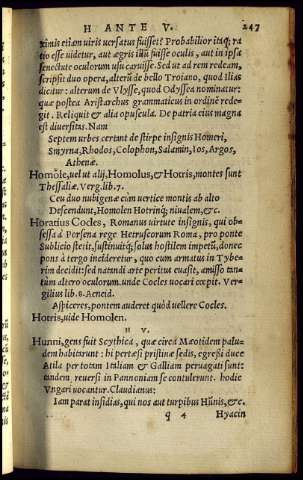 H ANTE V. 247
ximis etiam uiris uersatus fuisset? Probabilior itaq; ra
tio esse uidetur, aut ægris illū fuisse oculis, aut in ipsa
senectute oculorum usu caruisse. Sed ut ad rem redeam,
scripsit duo opera, alterū de bello Troiano, quod Ilias
dicitur: alterum de Vlysse, quod Odyssea nominatur:
quæ postea Aristarchus grammaticus in ordinē redegit.
Reliquit & alia opuscula. De patria eius magna
est diuersitas. Nam
Septem urbes certant de stirpe insignis Homeri,
Smyrna, Rhodos, Colophon, Salamin, Ios, Argos,
Athenæ.
Homole, uel ut alij, Homolus, & Hotris, montes sunt
Thessaliæ. Verg. lib. 7.
Ceu duo nubigenæ cùm uertice montis ab alto
Descendunt, Homolen Hotrinq; niualem, &c.
Horatius Cocles, Romanus uirtute insignis, qui obsessa
à Persena rege Hetruscorum Roma, pro ponte
Sublicio stetit, sustinuitq; solus hostilem impetū, donec
pons à tergo incideretur, quo cum armatus in Tyberim
decidit: sed natandi arte peritus euasit, amisso tantùm
altero oculorum. unde Cocles uocari cœpit. Vergilius
lib. 8. Aeneid.
Aspiceres, pontem auderet quòd uellere Cocles.
Hotris, uide Homolen.
H V.
Hunni, gens fuit Scythica, quæ circa Mæotidem paludem
habitarunt: hi pertæsi pristinæ sedis, egressi duce
Atila per totam Italiam & Galliam peruagati sunt:
tandem reuersi in Pannoniam se contulerunt. hodie
Vngari uocantur. Claudianus:
Iam parat insidias, qui nos aut turpibus Hūnis, &c.
q 4 Hyacin